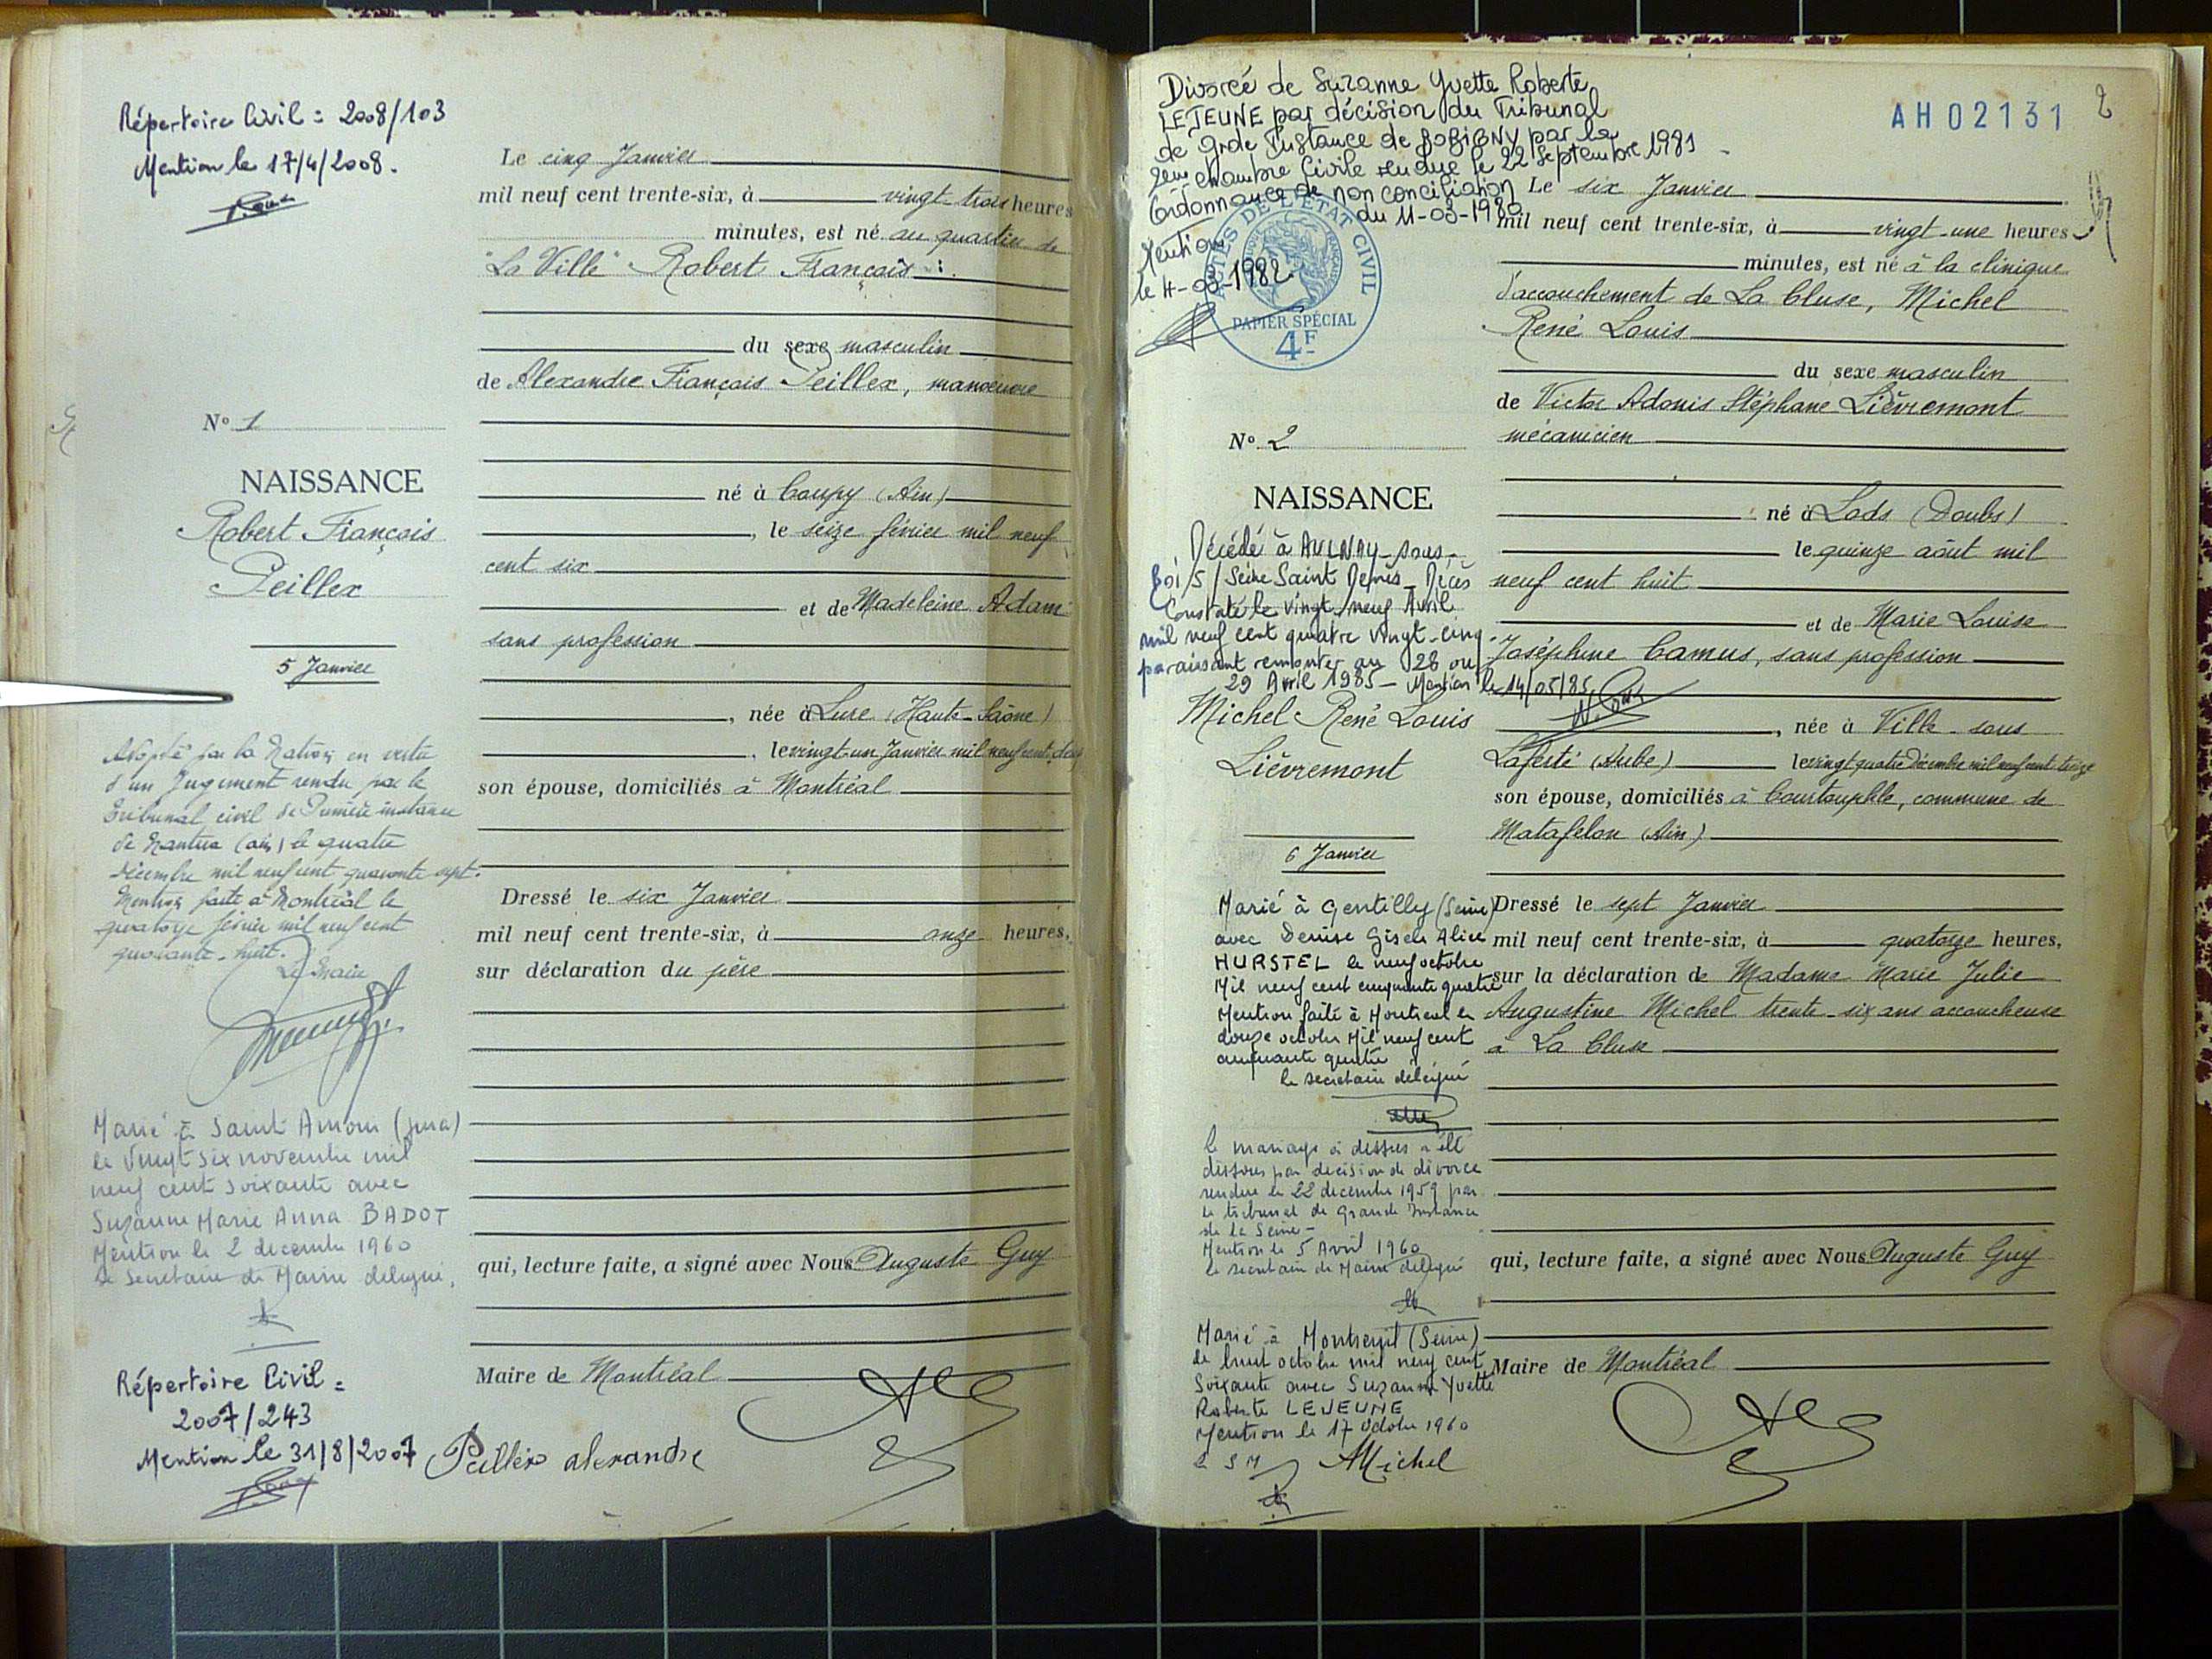 Répertoire Civil = 2008/103
Mention le 17/4/2008.
N° 1
NAISSANCE
Robert François
Peillex
5 Janvier
Adopté par la Nation en vertu
d'un Jugement rendu par le
Tribunal civil de Première instance
de Nantua (Ain) le quatre
décembre mil neuf cent quarante sept.
Mention faite à Montréal le
quatorze février mil neuf cent
quarante-huit.
Le Maire
Marié à Saint Amour (Jura)
le Vingt six novembre mil
neuf cent soixante avec
Suzanne Marie Anna BADOT
Mention le 2 decembre 1960
Le Secretaire de Mairie delegué,
Répertoire Civil =
2007/243
Mention le 31/8/2007
Le cinq Janvier
mil neuf cent trente-six, à vingt-trois heures
minutes, est né au quartier de
"La Ville" Robert François
du sexe masculin
de Alexandre François Peillex, manœuvre
né à Coupy (Ain)
, le seize février mil neuf
cent six
et de Madeleine Adam
sans profession
, née à Lure (Haute-Saône)
, le vingt-un Janvier mil neuf cent
son épouse, domiciliés à Montréal
Dressé le six Janvier
mil neuf cent trente-six, à onze heures,
sur déclaration du père
qui, lecture faite, a signé avec Nous Auguste Guy
Maire de Montréal
Peillex alexandre
Divorcé de Suzanne Yvette Roberte
LEJEUNE par décision du Tribunal
de Grde Instance de BOBIGNY par la
2ème Chambre Civile rendue le 22 Septembre 1981
Ordonnance de non conciliation
du 11-03-1980
Mention
le 11-03-1982
ACTES DE L'ÉTAT CIVIL
PAPIER SPÉCIAL
4F
AH02131
2
N° 2
NAISSANCE
Décédé à AULNAY-sous-
Bois/Seine Saint Denis_Décès
Constaté le vingt neuf Avril
mil neuf cent quatre vingt-cinq
paraissant remonter au 28 ou
29 Avril 1985 - Mention le 14/05/85
Michel René Louis
Lièvremont
6 Janvier
Marié à Gentilly (Seine)
avec Denise Gisele Alice
HURSTEL le neuf octobre
Mil neuf cent cinquante quatre
Mention faite à Montreal le
douze octobre Mil neuf cent
cinquante quatre
le secretaire délégué
le mariage ci dessus a été
dissous par decision de divorce
rendue le 22 decembre 1959 par
le tribunal de Grande Instance
de la Seine -
Mention le 5 Avril 1960
le secretaire de Mairie delegué
Marié à Montreuil (Seine)
le huit octobre mil neuf cent
Soixante avec Suzanne Yvette
Roberte LEJEUNE
Mention le 17 Octobre 1960
L S M
Michel
Le six Janvier
mil neuf cent trente-six, à vingt-une heures
minutes, est né à la clinique
d'accouchement de La Cluse, Michel
René Louis
du sexe masculin
de Victor Adonis Stéphane Lièvremont
mécanicien
né à Lods (Doubs)
le quinze août mil
neuf cent huit
et de Marie Louise
Joséphine Camus, sans profession
, née à Ville-sous
Laferté (Aube) le vingt quatre Décembre mil neuf cent treize
son épouse, domiciliés à Courtouphle, commune de
Matafelon (Ain)
Dressé le sept Janvier
mil neuf cent trente-six, à quatorze heures,
sur la déclaration de Madame Marie Julie
Augustine Michel trente-six ans accoucheuse
à La Cluse
qui, lecture faite, a signé avec Nous Auguste Guy
Maire de Montréal